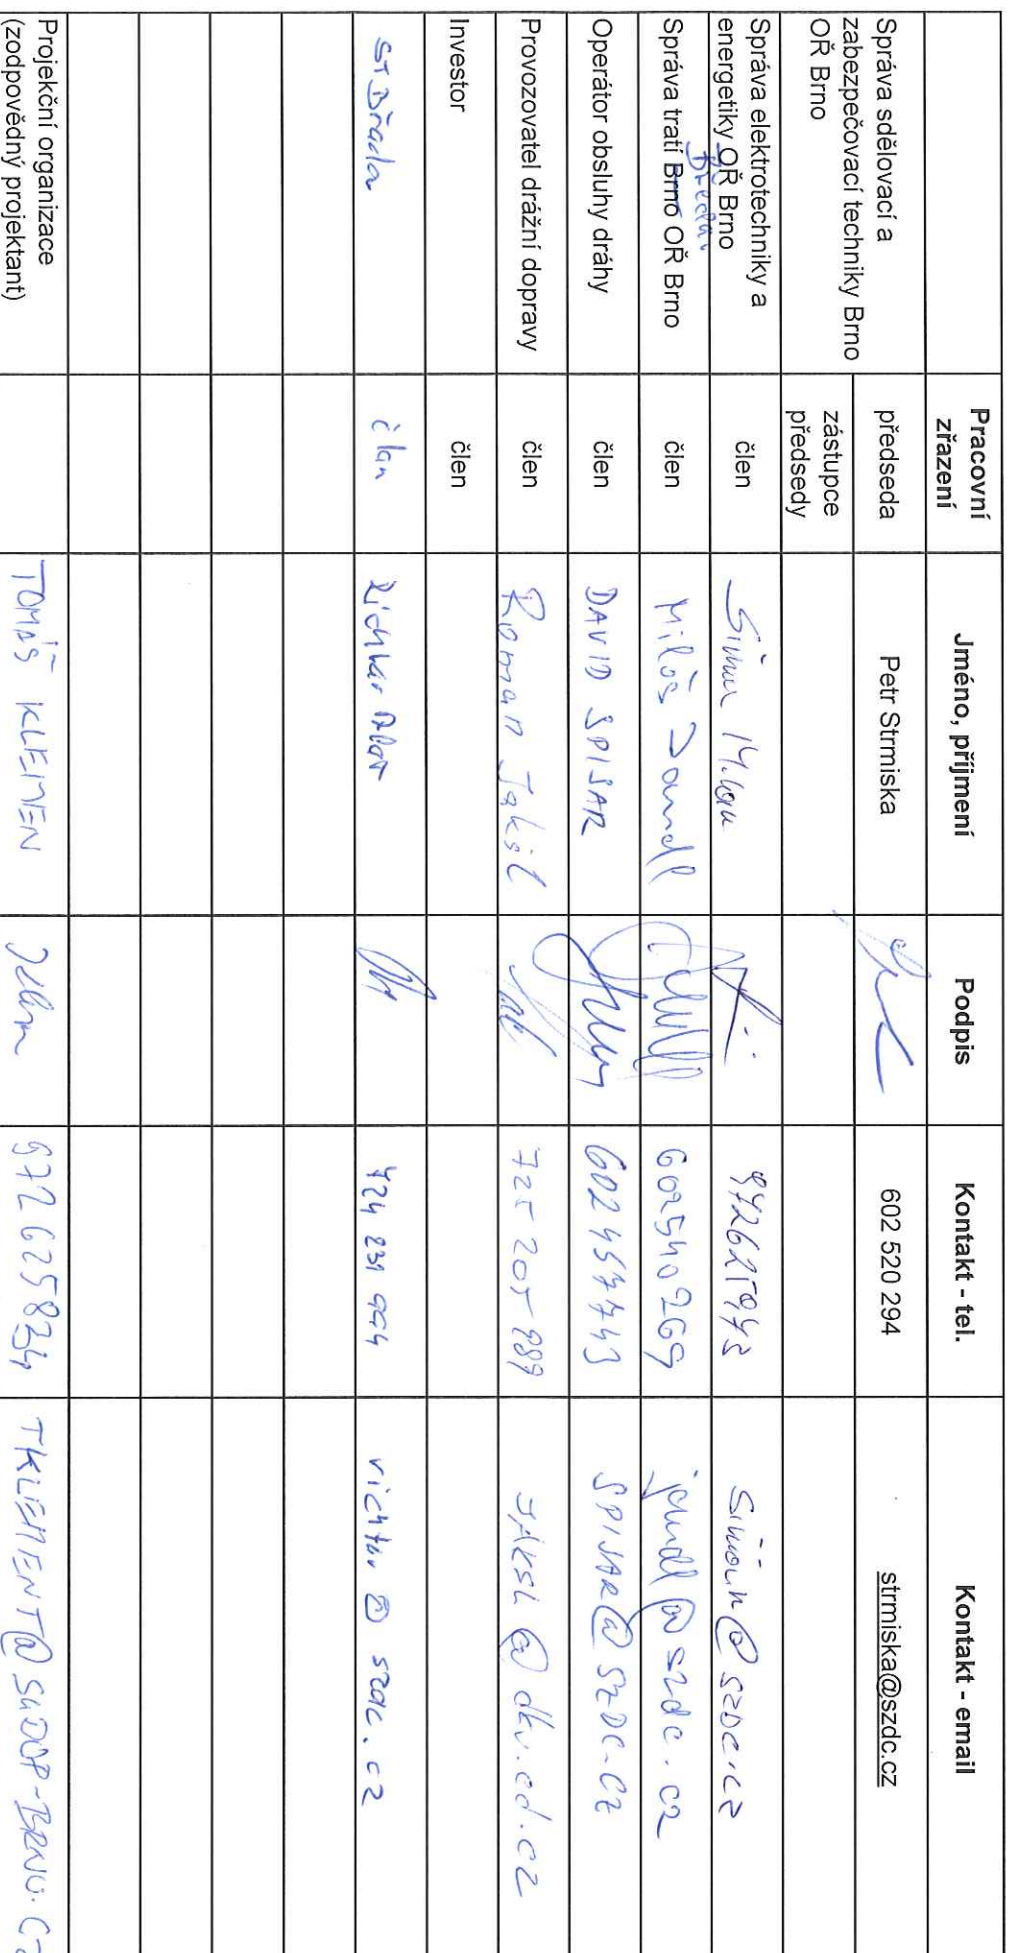 Pracovní zřazení Jméno, příjmení Podpis Kontakt - tel. Kontakt - email
Správa sdělovací a
zabezpečovací techniky Brno
OŘ Brno
předseda Petr Strmiska 602 520 294 strmiska@szdc.cz
zástupce
předsedy
Správa elektrotechniky a
energetiky OŘ Brno
člen Šimon @szdc.cz
Břeclav
Správa tratí Brno OŘ Brno člen Miloš 602540269 jandl@szdc.cz
Operátor obsluhy dráhy člen DAVID SPISAR 602457743 SPISAR@SZDC.CZ
Provozovatel drážní dopravy člen Roman Jaksl 725 205 989 JAKSL@dkv.cd.cz
Investor člen
ST člen 724 231 994 richtar@szdc.cz
Projekční organizace
(zodpovědný projektant)
TOMÁŠ KLEMEN 972625834 TKLEMENT@SUDOP-BRNO.CZ